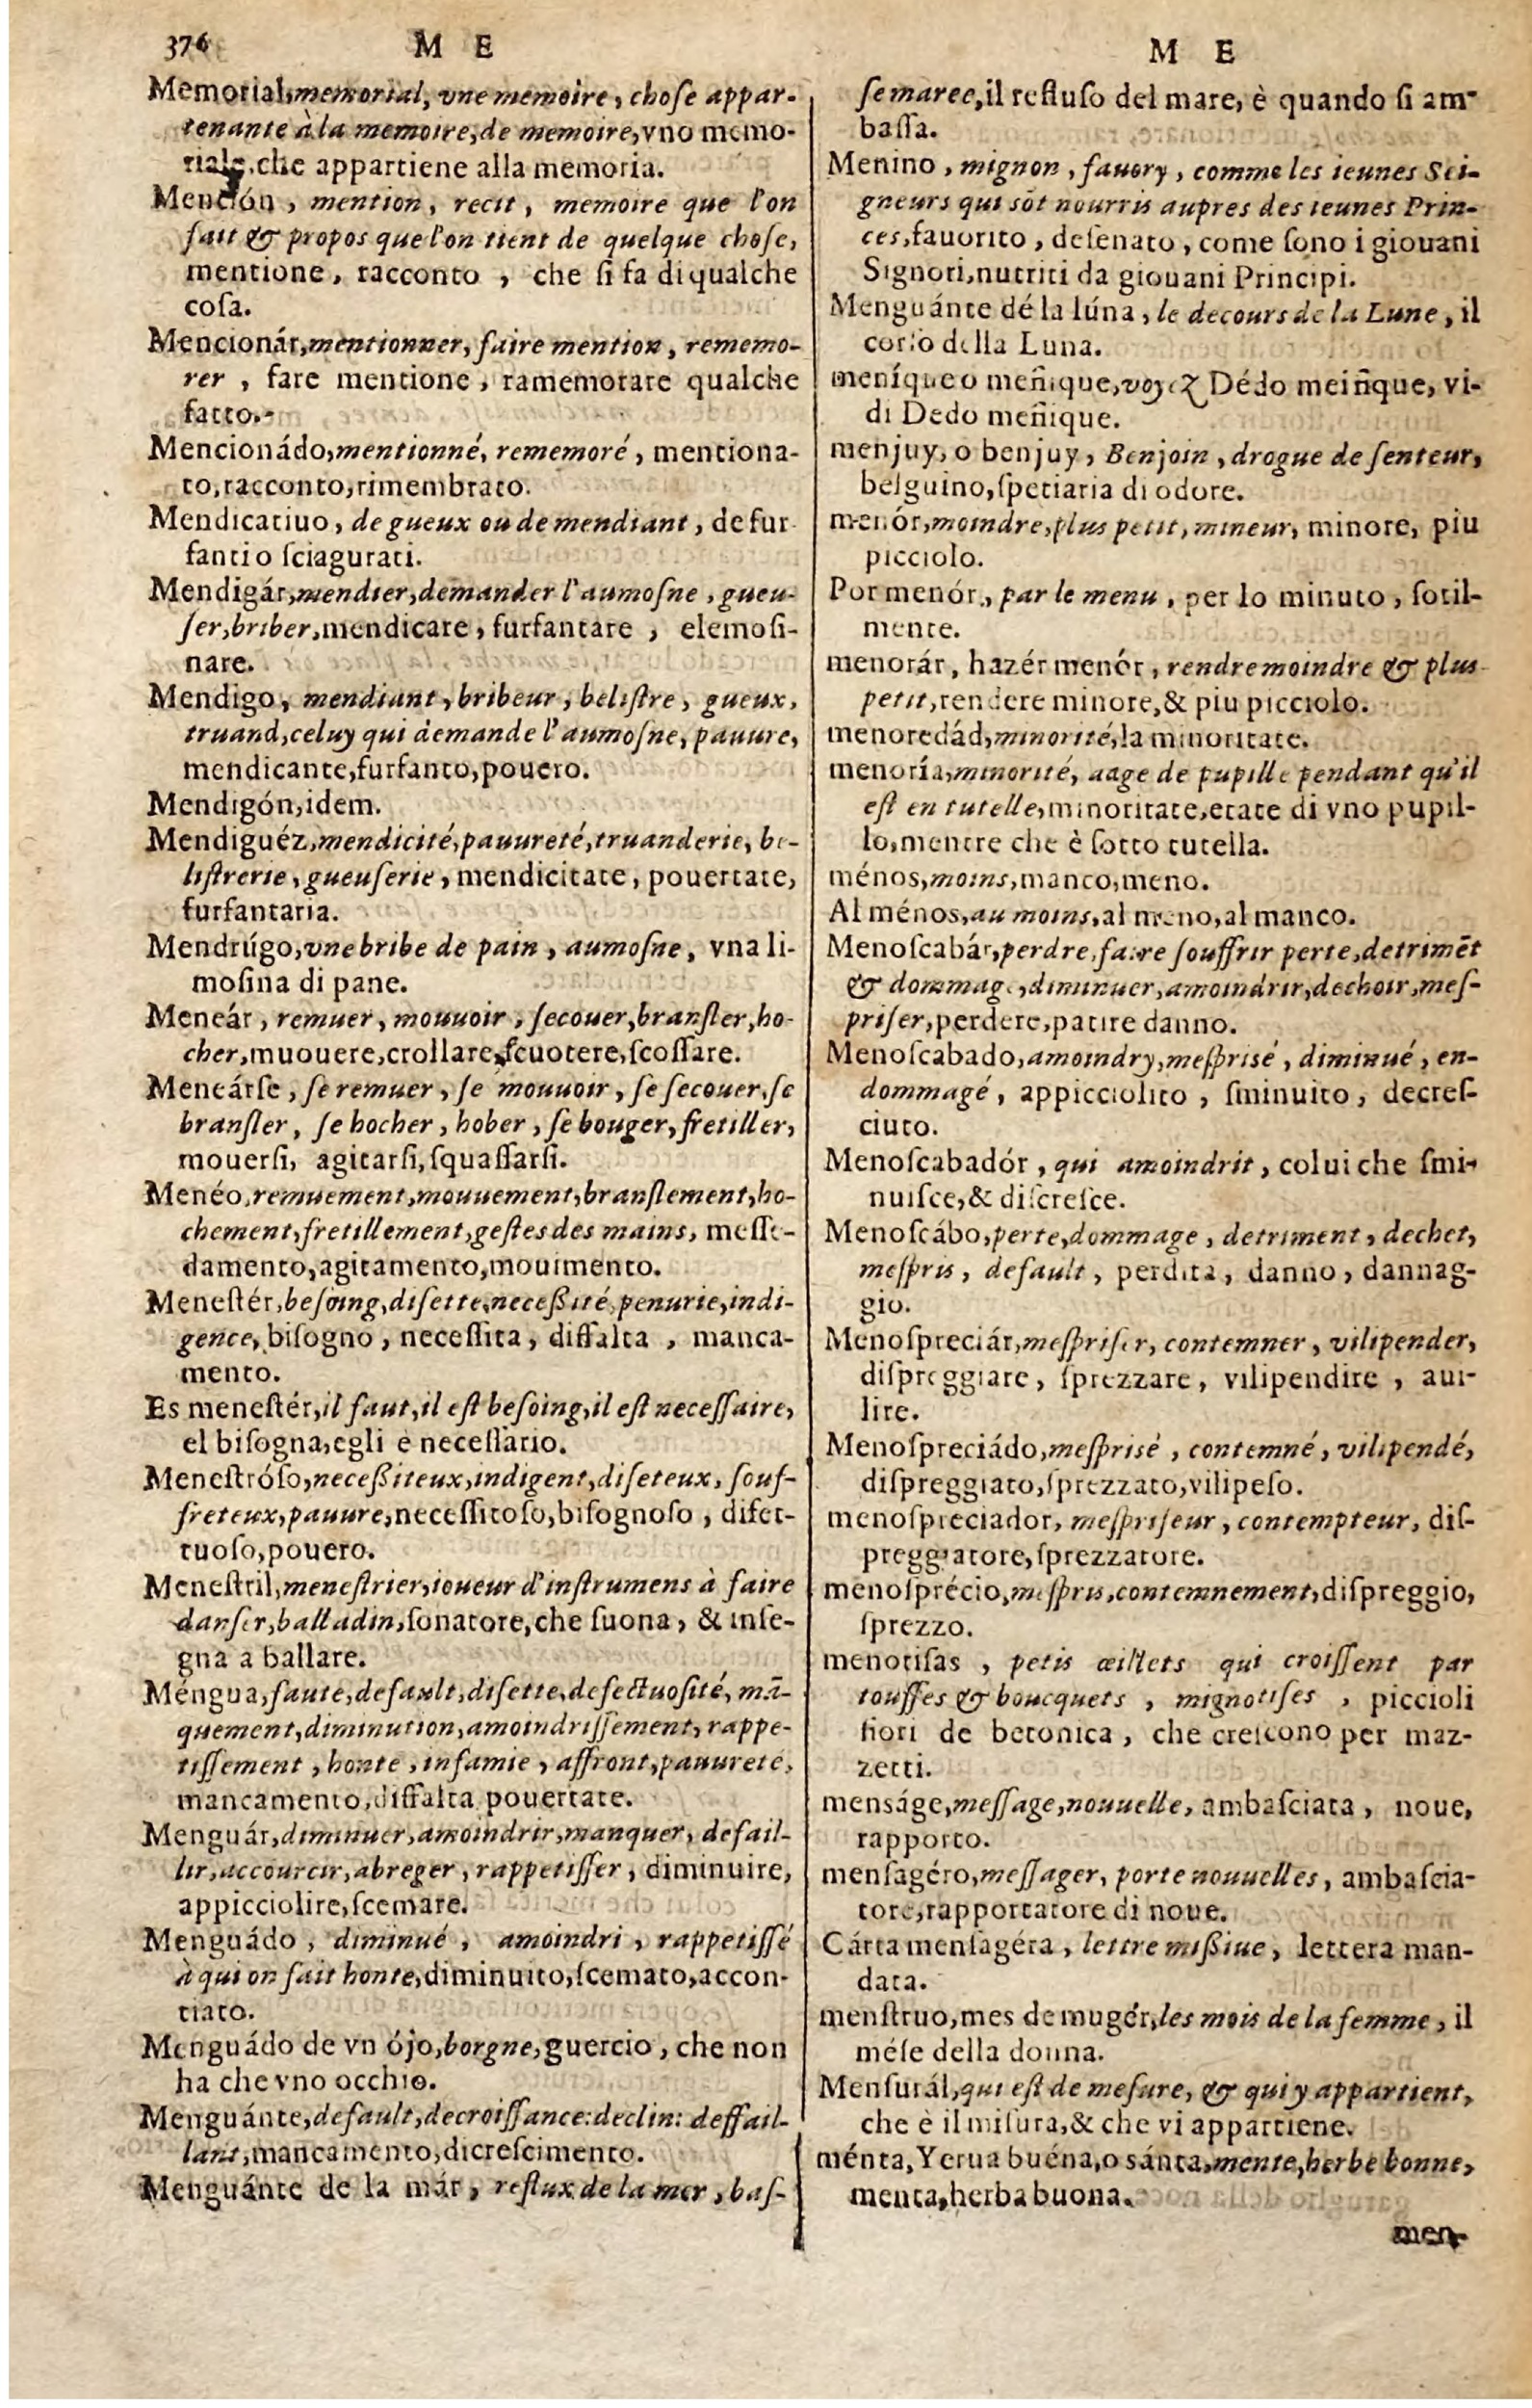 376 M E
Memorial, memorial, vne memoire, chose appar-
tenante à la memoire, de memoire, vno memo-
riale, che appartiene alla memoria.
Mención, mention, recit, memoire que l'on
fait & propos que l'on tient de quelque chose,
mentione, racconto, che si fa di qualche
cosa.
Mencionár, mentionner, faire mention, rememo-
rer, fare mentione, ramemorare qualche
fatto.
Mencionádo, mentionné, rememoré, mentiona-
to, racconto, rimembrato.
Mendicatiuo, de gueux ou de mendiant, de fur
fanti o sciagurati.
Mendigár, mendier, demander l'aumosne, gueu-
ser, briber, mendicare, furfantare, elemosi-
nare.
Mendigo, mendiant, bribeur, belistre, gueux,
truand, celuy qui demande l'aumosne, pauure,
mendicante, furfanto, pouero.
Mendigón, idem.
Mendiguéz, mendicité, pauureté, truanderie, be-
listrerie, gueuserie, mendicitate, pouertate,
furfantaria.
Mendrúgo, vne bribe de pain, aumosne, vna li-
mosina di pane.
Meneár, remuer, mouuoir, secouer, bransler, ho-
cher, muouere, crollare, scuotere, scossare.
Meneárse, se remuer, se mouuoir, se secouer, se
bransler, se hocher, hober, se bouger, fretiller,
mouersi, agitarsi, squassarsi.
Menéo, remuement, mouuement, branslement, ho-
chement, fretillement, gestes des mains, messe-
damento, agitamento, mouimento.
Menestér, besoing, disette, necessité, penurie, indi-
gence, bisogno, necessita, diffalta, manca-
mento.
Es menestér, il faut, il est besoing, il est necessaire,
el bisogna, egli è necessario.
Menestróso, necessiteux, indigent, diseteux, souf-
freteux, pauure, necessitoso, bisognoso, difet-
tuoso, pouero.
Menestril, menestrier, ioueur d'instrumens à faire
danser, balladin, sonatore, che suona, & inse-
gna a ballare.
Méngua, faute, default, disette, defectuosité, mā-
quement, diminution, amoindrissement, rappe-
tissement, honte, infamie, affront, pauureté,
mancamento, diffalta pouertate.
Menguár, diminuer, amoindrir, manquer, defail-
lir, accourcir, abreger, rappetisser, diminuire,
appicciolire, scemare.
Menguádo, diminué, amoindri, rappetissé
à qui on fait honte, diminuito, scemato, accon-
tiato.
Menguádo de vn ójo, borgne, guercio, che non
ha che vno occhio.
Menguánte, default, decroissance: declin: deffail-
lant, mancamento, dicrescimento.
Menguánte de la már, reflux de la mer, bas-
M E
se maree, il reflluso del mare, è quando si am-
bassa.
Menino, mignon, fauory, comme les ieunes Sei-
gneurs qui sōt nourris aupres des ieunes Prin-
ces, fauorito, desenato, come sono i giouani
Signori, nutriti da giouani Principi.
Menguánte dé la lúna, le decours de la Lune, il
corso della Luna.
meníque o meñique, voyez Dédo meiñque, vi-
di Dedo meñique.
menjuy, o benjuy, Benjoin, drogue de senteur,
belguino, spetiaria di odore.
menór, moindre, plus petit, mineur, minore, piu
picciolo.
Por menór, par le menu, per lo minuto, sotil-
mente.
menorár, hazér menór, rendre moindre & plus
petit, rendere minore, & piu picciolo.
menoredád, minorité, la minoritate.
menoría, minorité, aage de pupille pendant qu'il
est en tutelle, minoritate, etate di vno pupil-
lo, mentre che è sotto tutella.
ménos, moins, manco, meno.
Al ménos, au moins, al meno, al manco.
Menoscabár, perdre, faire souffrir perte, detrimēt
& dommage, diminuer, amoindrir, dechoir, mes-
priser, perdere, patire danno.
Menoscabado, amoindry, mesprisé, diminué, en-
dommagé, appicciolito, sminuito, decres-
ciuto.
Menoscabadór, qui amoindrit, colui che smi-
nuisce, & discresce.
Menoscábo, perte, dommage, detriment, dechet,
mespris, default, perdita, danno, dannag-
gio.
Menospreciár, mespriser, contemner, vilipender,
dispreggiare, sprezzare, vilipendire, aui-
lire.
Menospreciádo, mesprisé, contemné, vilipendé,
dispreggiato, sprezzato, vilipeso.
menospreciador, mespriseur, contempteur, dis-
preggiatore, sprezzatore.
menosprécio, mespris, contemnement, dispreggio,
sprezzo.
menotisas, petis œillets qui croissent par
touffes & boucquets, mignotises, piccioli
fiori de betonica, che crescono per maz-
zetti.
menságe, message, nouuelle, ambasciata, noue,
rapporto.
mensagéro, messager, porte nouuelles, ambascia-
tore, rapportatore di noue.
Cárta mensagéra, lettre missiue, lettera man-
data.
menstruo, mes de mugér, les mois de la femme, il
mése della donna.
Mensurál, qui est de mesure, & qui y appartient,
che è il misura, & che vi appartiene.
ménta, Yerua buéna, o sánta, mente, herbe bonne,
menta, herba buona.
men-